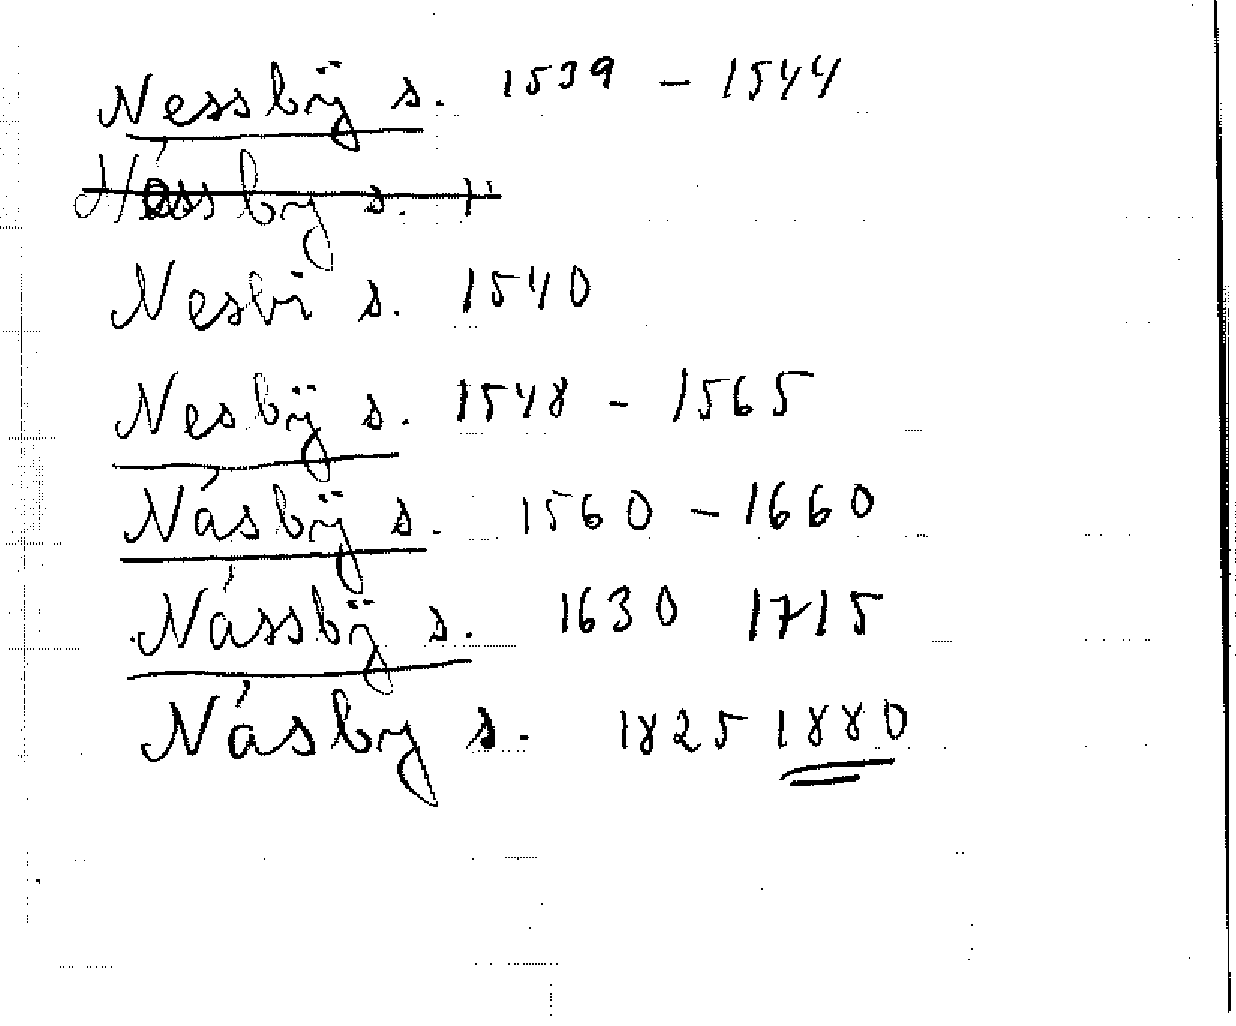 Nessbÿ s. 1539 - 1544
Nássbÿ s. 1
Nesbi s. 1540
Nesbÿ s. 1548 - 1565
Násbÿ s. 1560 - 1660
Nássbÿ s. 1630 1715
Násby s. 1825 1880